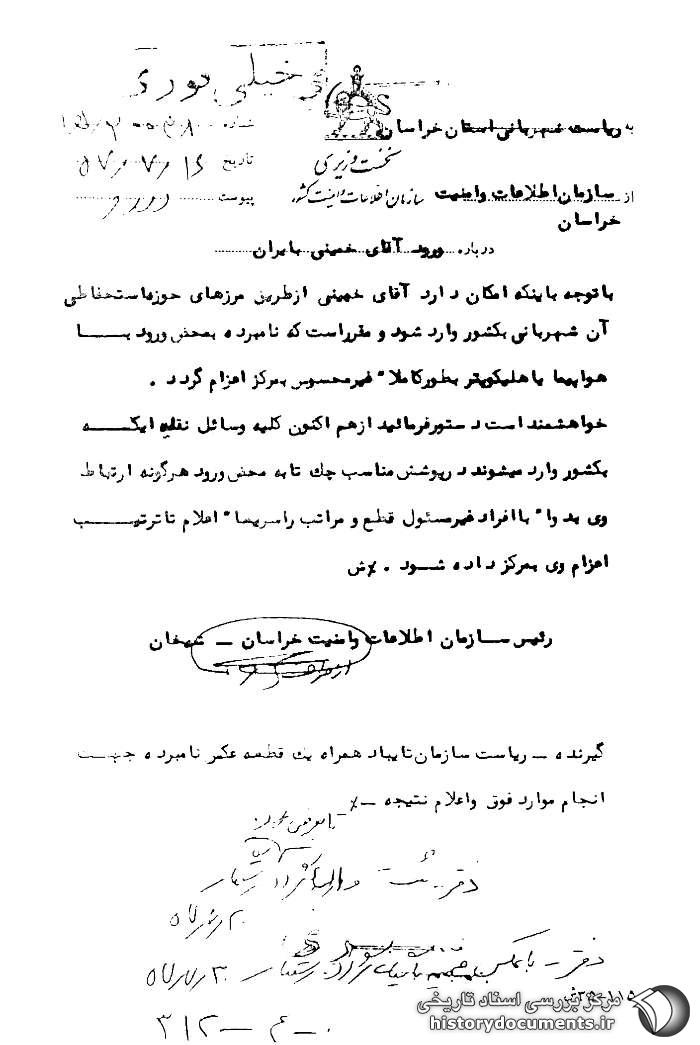 خیلی فوری
به ریاست شهربانی استان خراسان
شماره
نخست وزیری
تاریخ ۵۷/۷/۱۶
از سازمان اطلاعات وامنیت خراسان
سازمان اطلاعات و امنیت کشور
پیوست دارد
درباره ورود آقای خمینی بایران
باتوجه باینکه امکان دارد آقای خمینی ازطریق مرزهای حوزه‌استحفاظی
آن شهربانی بکشور وارد شود و مقرراست که نامبرده بمحض ورود بـــا
هواپیما یاهلیکوپتر بطورکاملا" غیرمحسوس بمرکز اعزام گردد .
خواهشمند است دستورفرمائید ازهم اکنون کلیه وسائل نقلیه ایکـــه
بکشور وارد میشوند درپوشش مناسب چك تابه محض ورود هرگونه ارتباط
وی بدوا" باافراد غیرمسئول قطع و مراتب راسریعا" اعلام تاترتیـــب
اعزام وی بمرکز داده شـــود . %ش
رئیس ســازمان اطلاعات وامنیت خراسان – شیخان
گیرنده – ریاست سازمان تایباد همراه یك قطعه عکس نامبرده جهـت
انجام موارد فوق واعلام نتیجه –%
دفتر
دفتر –
۳۱۲ – ۴ – ۰
مرکز بررسی اسناد تاریخی
historydocuments.ir